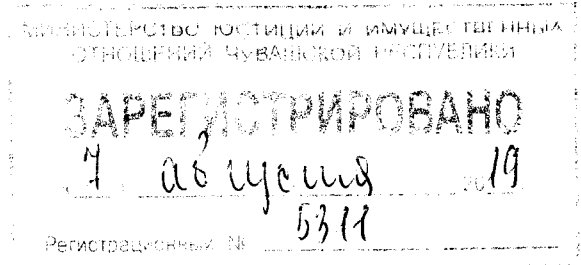 МИНИСТЕРСТВО ЮСТИЦИИ И ИМУЩЕСТВЕННЫХ
ОТНОШЕНИЙ ЧУВАШСКОЙ РЕСПУБЛИКИ
ЗАРЕГИСТРИРОВАНО
7 августа 2019
Регистрационный № 5311